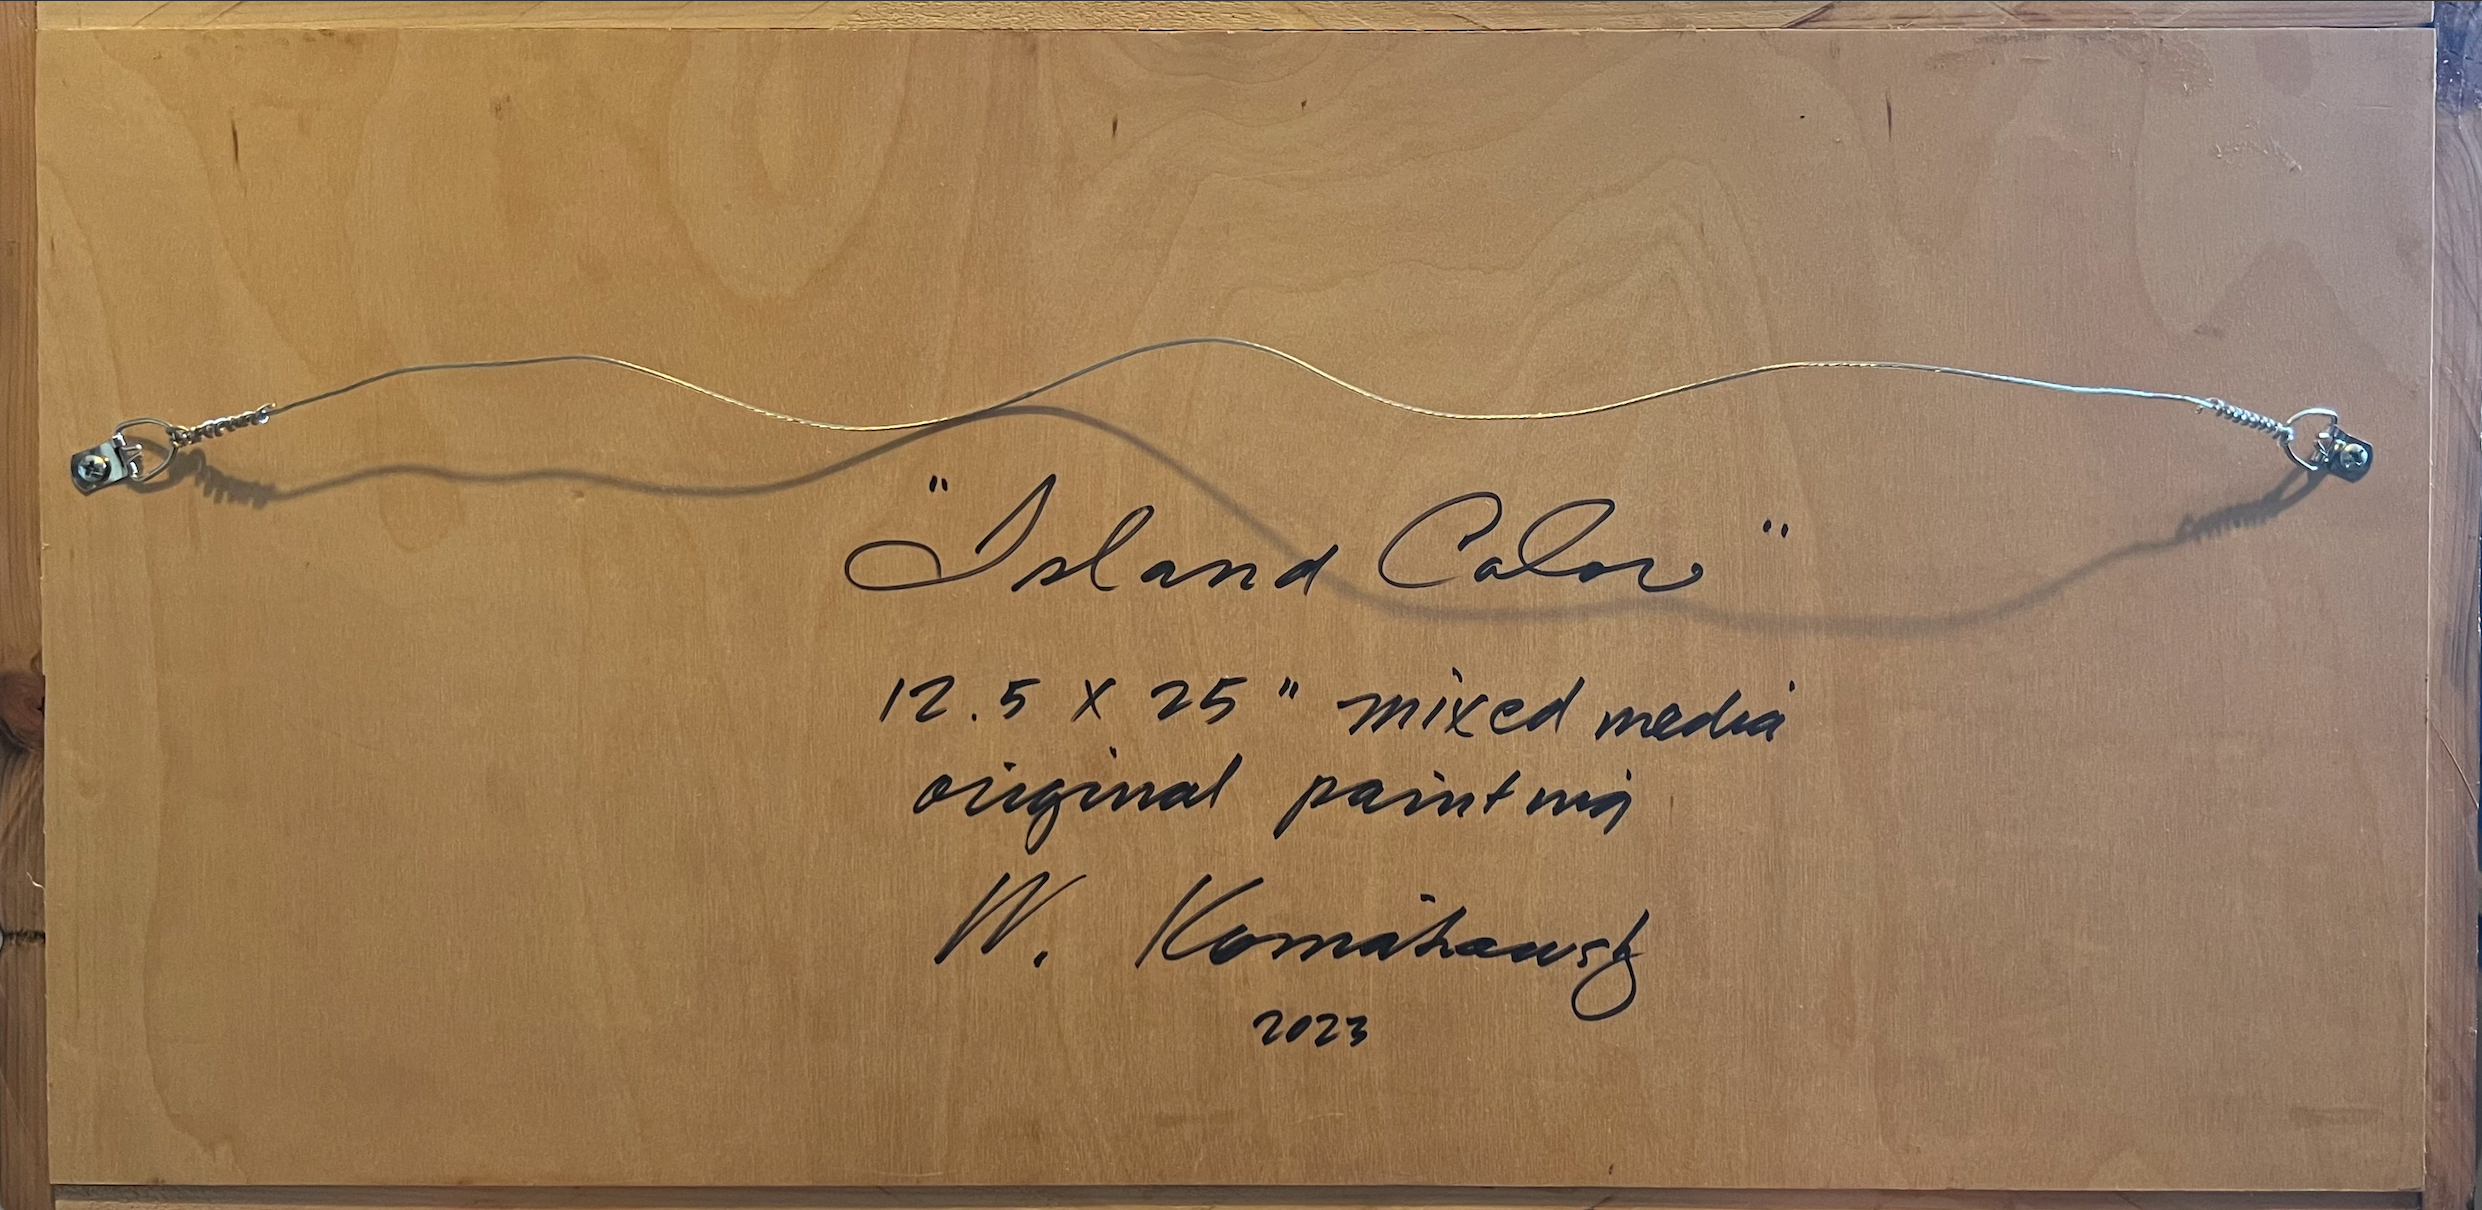 "Island Color"
12.5 x 25" mixed media
original painting
W.
2023